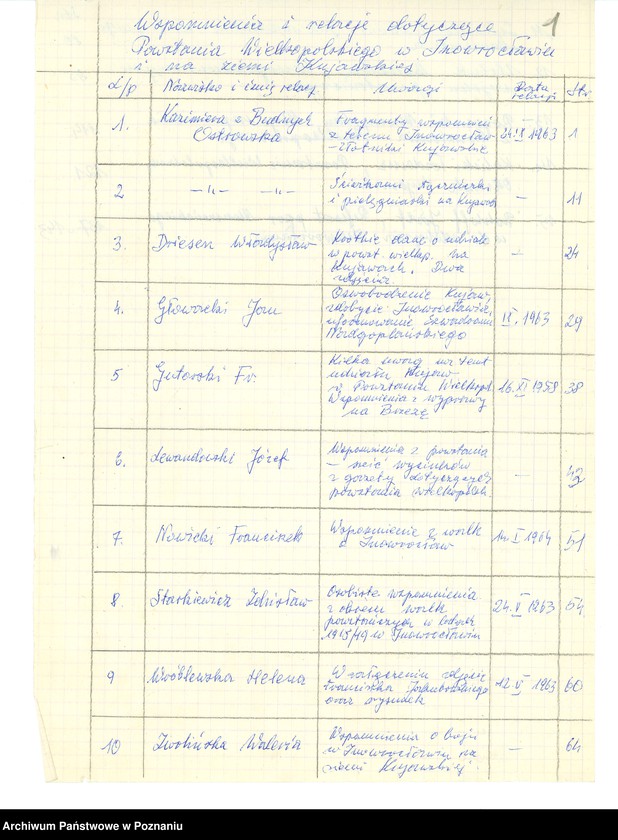 1
Wspomnienia i relacje dotyczące
Powstania Wielkopolskiego w Inowrocławiu
i na ziemi Kujawskiej
L/p Nazwisko i imię relacj. Uwagi Data relacji Str
1. Kazimiera z Budnych Ostrowska
Fragmenty wspomnień
z terenu Inowrocław
- Złotniki Kujawskie
1963 1
2 —"— —"—
i pielęgniarki na Kujaw.
— 11
3. Driesen Władysław
Krótkie dane o udziale
w powst. wielkop. na
Kujawach. Dwa
zdjęcia.
— 24
4. Głowacki Jan
Oswobodzenie Kujaw,
zdobycie Inowrocławia,
uformowanie Szwadronu
Nadgoplańskiego
IX. 1963 29
5 Gutowski Fr.
Kilka uwag na temat
udziału Kujaw
w Powstaniu Wielkopol.
Wspomnienia z wyprawy
na
16. XI 1958 38
6. Lewandowski Józef
Wspomnienia z powstania
— sześć wycinków
z gazety dotyczących
powstania wielkopol.
— 42
7. Nowicki Franciszek
Wspomnienie z walk
o Inowrocław
14. I 1964 51
8. Stankiewicz Zdzisław
Osobiste wspomnienia
z okresu walk
powstańczych w latach
1918/19 w Inowrocławiu
24. V 1963 54
9 Wróblewska Helena
W załączeniu zdjęcie
Franciszka
oraz rysunek
12. VI 1963 60
10 Waleria
Wspomnienia o boju
w Inowrocławiu na
ziemi Kujawskiej.
— 64
Archiwum Państwowe w Poznaniu